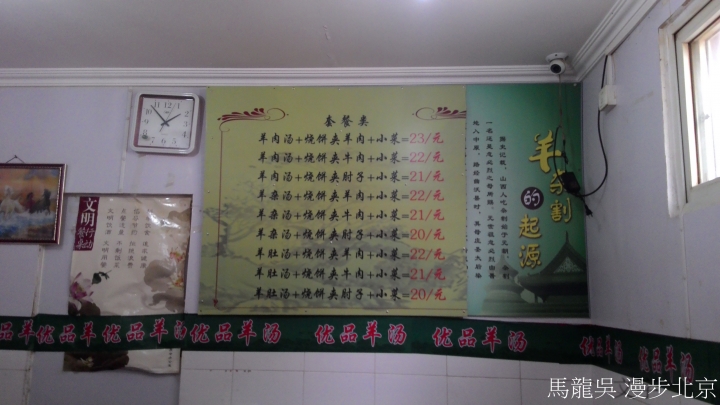 套餐类
羊肉汤+烧饼夹羊肉+小菜=23/元
羊肉汤+烧饼夹牛肉+小菜=22/元
羊肉汤+烧饼夹肘子+小菜=21/元
羊杂汤+烧饼夹羊肉+小菜=22/元
羊杂汤+烧饼夹牛肉+小菜=21/元
羊杂汤+烧饼夹肘子+小菜=20/元
羊肚汤+烧饼夹羊肉+小菜=22/元
羊肚汤+烧饼夹牛肉+小菜=21/元
羊肚汤+烧饼夹肘子+小菜=20/元
羊杂割的起源
文明餐桌行动
优品羊汤 优品羊汤 优品羊汤 优品羊汤 优品羊汤 优品羊汤 优品羊汤
馬龍吳 漫步北京